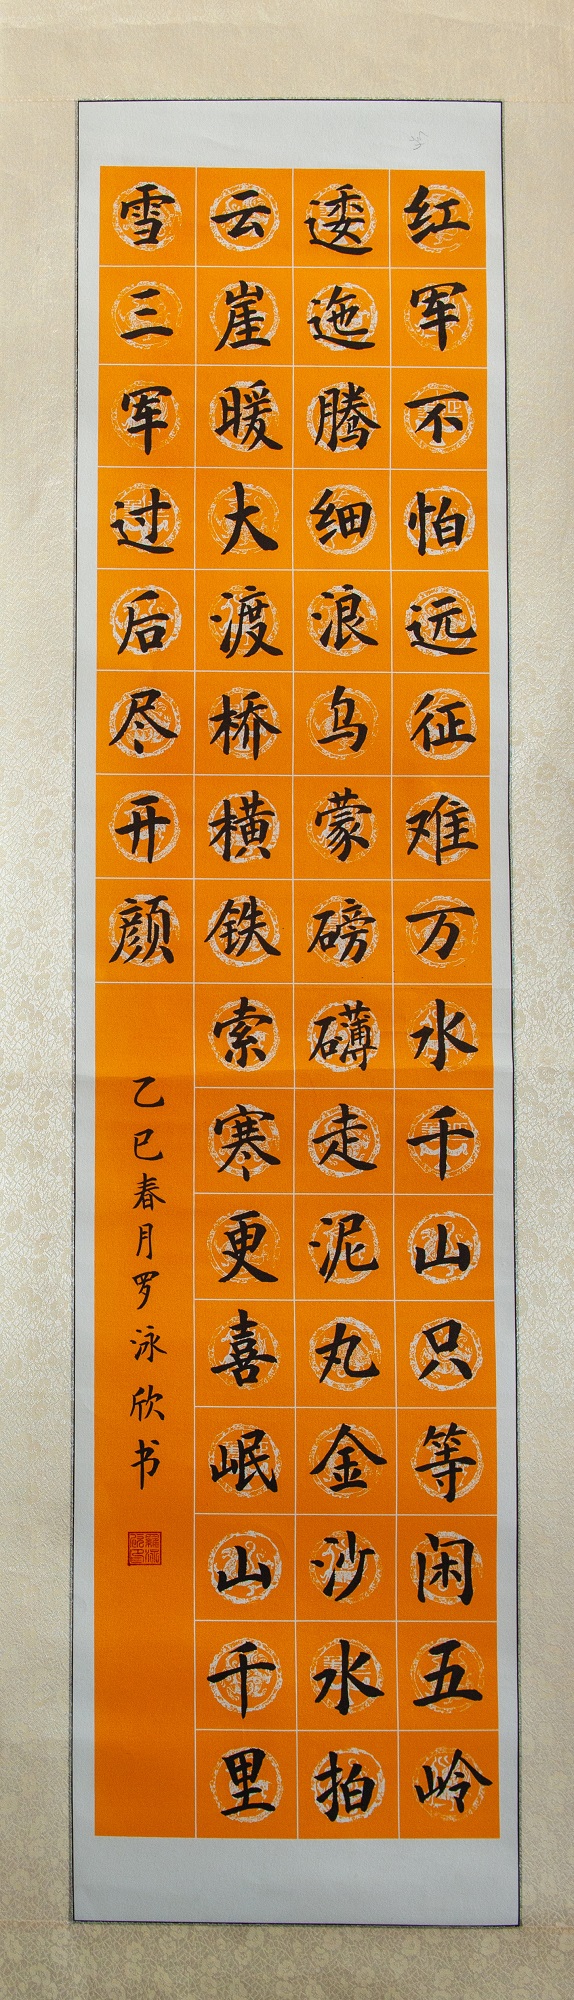 红军不怕远征难万水千山只等闲五岭
逶迤腾细浪乌蒙磅礴走泥丸金沙水拍
云崖暖大渡桥横铁索寒更喜岷山千里
雪三军过后尽开颜
乙巳春月罗泳欣书